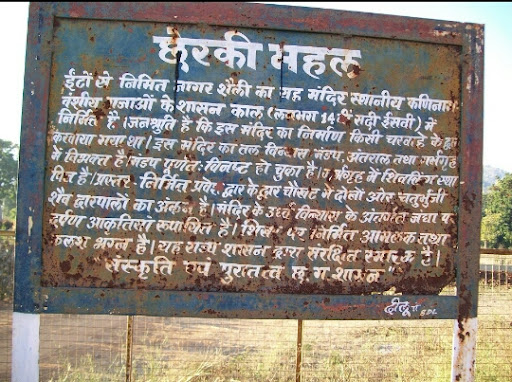 छरकी महल
ईंटों से निर्मित नागर शैली का यह मंदिर स्थानीय फणिनाग
वंशीय राजाओं के शासन काल (लगभग 14वीं सदी ईसवी) में
निर्मित है। जनश्रुति है कि इस मंदिर का निर्माण किसी चरवाहे के द्वारा
करवाया गया था। इस मंदिर का तल विन्यास मण्डप, अंतराल तथा गर्भगृह
में विभक्त है। मंडप पूर्णतः विनष्ट हो चुका है। गर्भगृह में शिवलिंग स्था
पित है। प्रस्तर- निर्मित प्रवेश द्वार के द्वार चौखट में दोनों ओर चतुर्भुजी
शैव द्वारपालों का अंकन है। मंदिर के उर्ध्व विन्यास के अंतर्गत जंघा पर
दर्पण आकृतियां रूपायित है। शिखर पर निर्मित आमलक तथा
कलश भग्न है। यह राज्य शासन द्वारा संरक्षित स्मारक है।
"संस्कृति एवं पुरातत्व छ.ग. शासन"